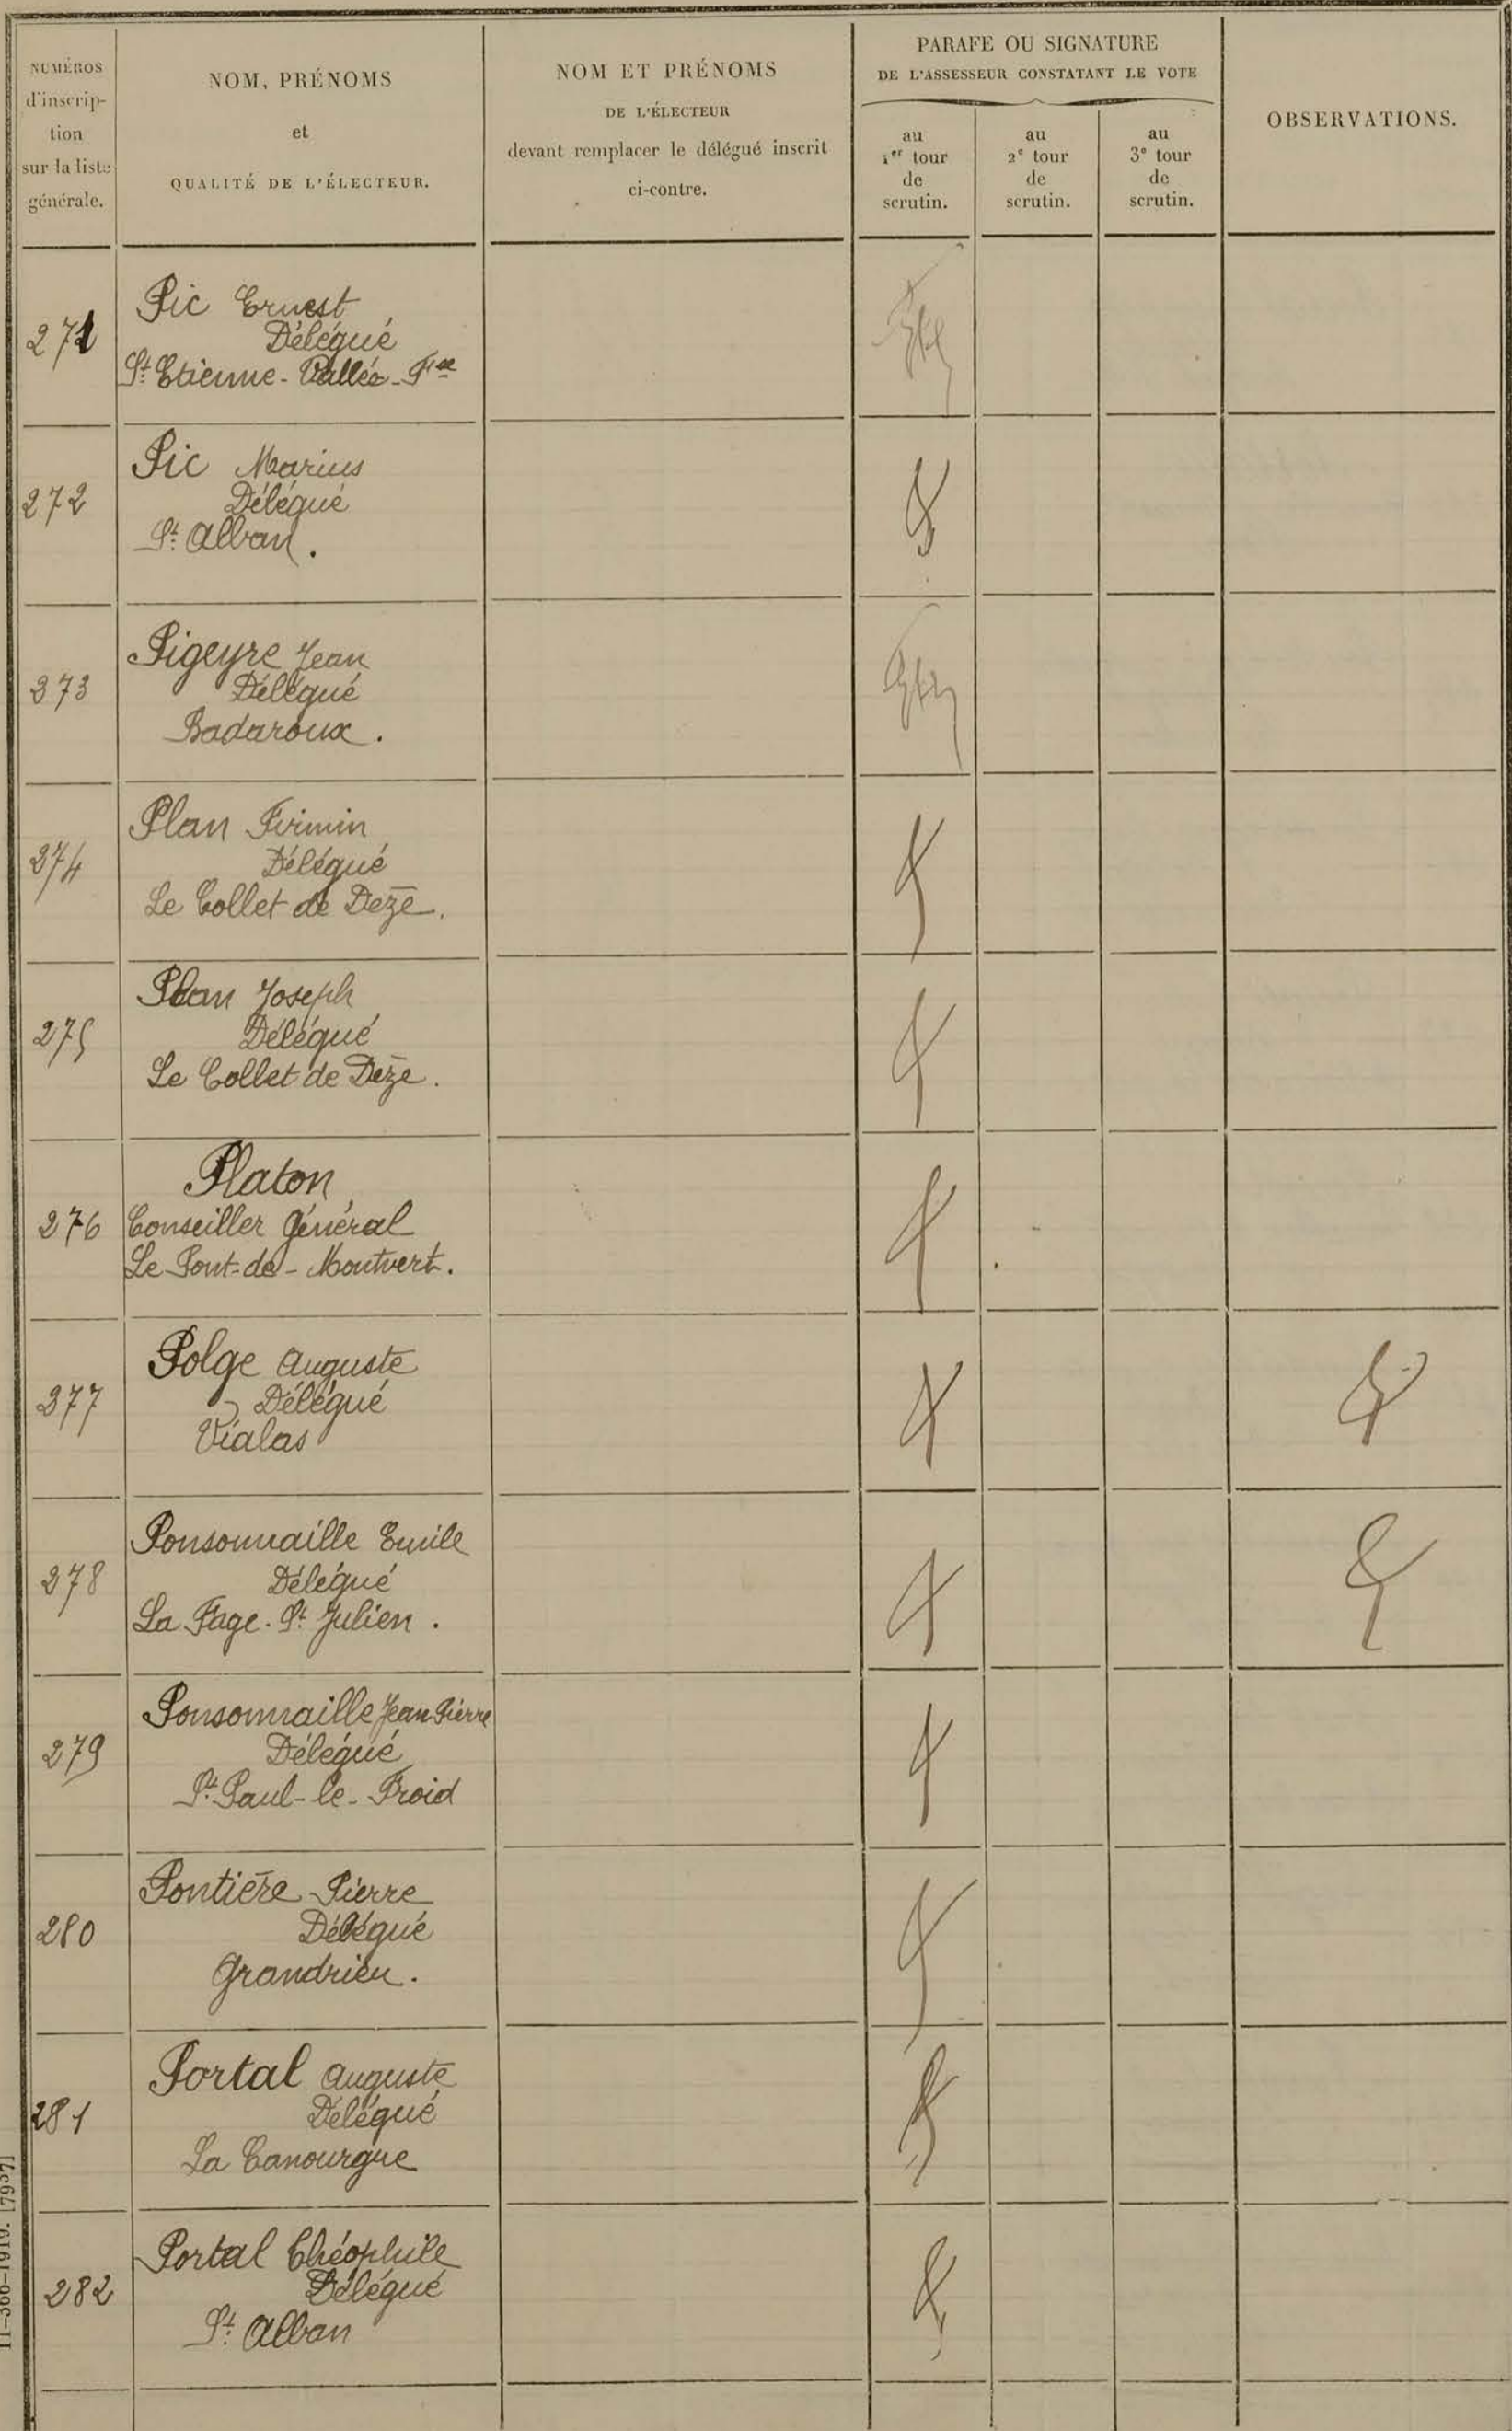 NUMÉROS
d'inscrip-
tion
sur la liste
générale.
NOM, PRÉNOMS
et
QUALITÉ DE L'ÉLECTEUR.
NOM ET PRÉNOMS
DE L'ÉLECTEUR
devant remplacer le délégué inscrit
ci-contre.
PARAFE OU SIGNATURE
DE L'ASSESSEUR CONSTATANT LE VOTE
au
1er tour
de
scrutin.
au
2e tour
de
scrutin.
au
3e tour
de
scrutin.
OBSERVATIONS.
271
Pic Ernest
Délégué
St Etienne-Vallée-Fse
272
Pic Marius
Délégué
St Alban.
273
Pigeyre Jean
Délégué
Badaroux.
274
Plan Firmin
Délégué
Le Collet de Dèze.
275
Plan Joseph
Délégué
Le Collet de Dèze.
276
Platon
Conseiller Général
Le Pont-de-Montvert.
277
Polge Auguste
Délégué
Vialas
278
Ponsonnaille Emile
Délégué
La Fage-St Julien.
279
Ponsonnaille Jean Pierre
Délégué
St Paul-le-Froid
280
Pontière Pierre
Délégué
Grandrieu.
281
Portal Auguste
Délégué
La Canourgue
282
Portal Théophile
Délégué
St Alban